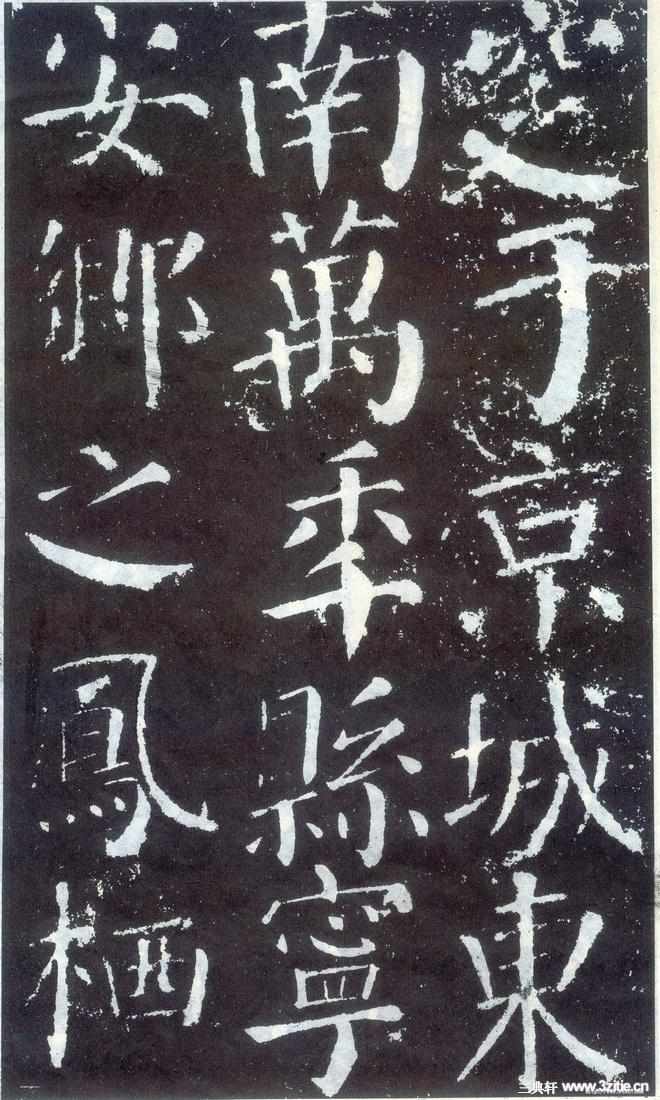 于京城東
南萬年縣寧
安鄉之鳳栖
三典轩 www.3zitie.cn